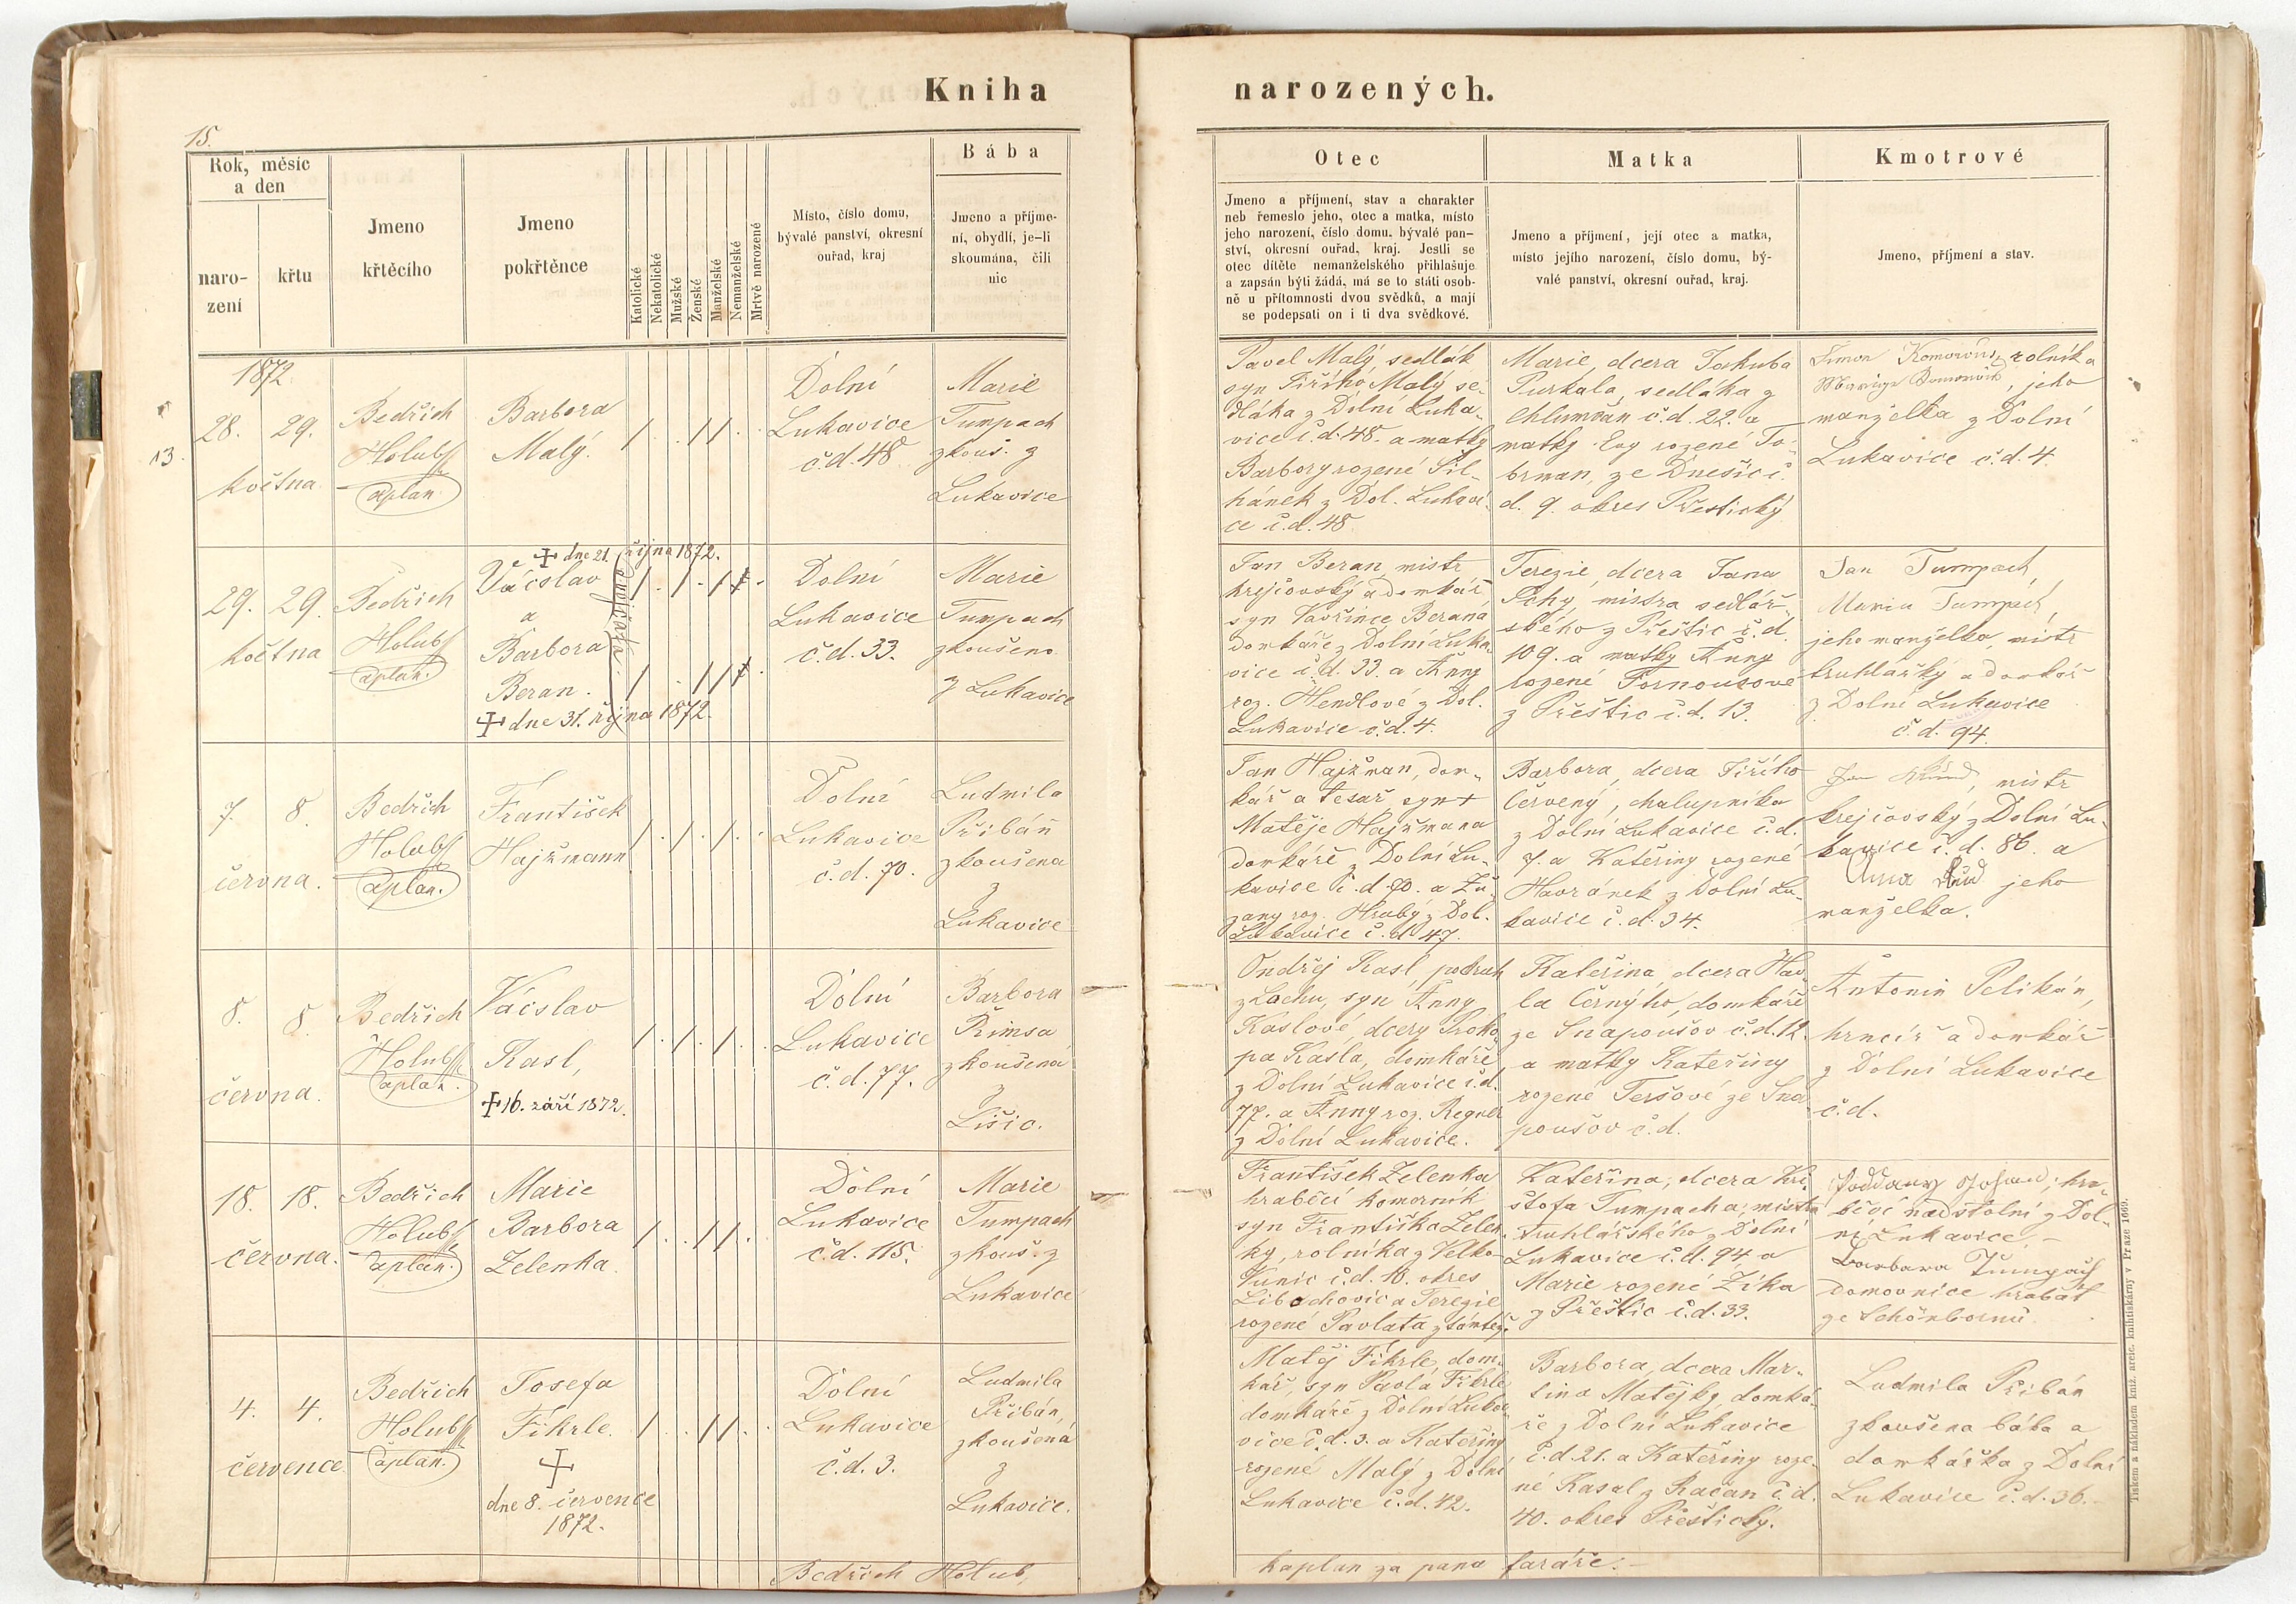 Kniha
narozených.
15.
Rok, měsíc
a den
naro-
zení
křtu
Jmeno
křtěcího
Jmeno
pokřtěnce
Katolické
Nekatolické
Mužské
Ženské
Manželské
Nemanželské
Mrtvě narozené
Místo, číslo domu,
bývalé panství, okresní
ouřad, kraj
Bába
Jmeno a příjme-
ní, obydlí, je-li
skoumána, čili
nic
Otec
Jmeno a příjmení, stav a charakter
neb řemeslo jeho, otec a matka, místo
jeho narození, číslo domu, bývalé pan-
ství, okresní ouřad, kraj. Jestli se
otec dítěte nemanželského přihlašuje
a zapsán býti žádá, má se to státi osob-
ně u přítomnosti dvou svědků, a mají
se podepsati on i ti dva svědkové.
Matka
Jmeno a příjmení, její otec a matka,
místo jejího narození, číslo domu, bý-
valé panství, okresní ouřad, kraj.
Kmotrové
Jmeno, příjmení a stav.
1872
13.
28. 29.
května
Bedřich
Holub
Barbora
Malý.
Dolní
Lukavice
č.d. 48
Marie
Tumpach
zkouš. z
Lukavice
Pavel Malý, sedlák
syn Jiřího Malý se-
dláka z Dolní Luka-
vice č.d. 48. a matky
Barbory rozené Sil-
hánek z Dol. Lukavi-
ce č.d. 48.
Marie, dcera Jakuba
Purkala, sedláka z
Chlumčan č.d. 22. a
matky Evy rozené To-
brman, ze Dnešic č.
d. 9. okres Přestický
rolník a
jeho
manželka z Dolní
Lukavice č.d. 4.
29. 29.
května
Bedřich
Holub
+ dne 21. října 1872.
Váčslav
a
Barbora
Beran.
+ dne 31. října 1872.
Dolní
Lukavice
č.d. 33.
Marie
Tumpach
zkoušena
z Lukavice
Jan Beran, mistr
krejčovský a domkář,
syn Vavřince Berana
domkáře z Dolní Luka-
vice č.d. 33. a Anny
roz. Hendlové z Dol.
Lukavice č.d. 4.
Terezie, dcera Jana
Pchy, mistra sedlář-
ského z Přeštic č.d.
109. a matky Anny
rozené Tornousové
z Přeštic č.d. 13.
Jan Tumpach,
Maria Tumpach,
jeho manželka, mistr
truhlářský a domkář
z Dolní Lukavice
č.d. 94.
7. 8.
června.
Bedřich
Holub
František
Hajžmann
Dolní
Lukavice
č.d. 70.
Ludmila
Přibáň
zkoušena
z
Lukavice
Jan Hajžman, dom-
kář a tesař, syn +
Matěje Hajžmana
domkáře z Dolní Lu-
kavice č.d. 70. a Zu-
zany roz. Hrubý z Dol.
Lukavice č.d. 47.
Barbora, dcera Jiřího
Červený, chalupníka
z Dolní Lukavice č.d.
7. a Kateřiny rozené
Havránek z Dolní Lu-
kavice č.d. 34.
mistr
krejčovský z Dolní Lu-
kavice č.d. 86. a
Anna jeho
manželka.
8. 8.
června.
Bedřich
Holub
Váčslav
Kasl,
+ 16. září 1872.
Dolní
Lukavice
č.d. 77.
Barbora
Řimsa
zkoušená
z
Lišic.
Ondřej Kasl, podruh
z Lochu, syn Anny
Kaslové, dcery Proko-
pa Kasla, domkáře
z Dolní Lukavice č.d.
77. a Anny roz. Regner
z Dolní Lukavice.
Kateřina, dcera Hav-
la Černýho, domkáře
ze Snapoušov č.d. 12.
a matky Kateřiny
rozené Teršové ze Sna-
poušov č.d.
Antonín Pelikán,
hrnčíř a domkář
z Dolní Lukavice
č.d.
18. 18.
června.
Bedřich
Holub
Marie
Barbora
Zelenka
Dolní
Lukavice
č.d. 115.
Marie
Tumpach
zkouš. z
Lukavice
František Zelenka
hraběcí komorník
syn Františka Zelen-
ky, rolníka z Velko-
Vunic č.d. 10. okres
Libochovic a Terezie
rozené Pavlata z
Kateřina, dcera Kri-
štofa Tumpacha, mistra
truhlářského z Dolní
Lukavice č.d. 94. a
Marie rozené Zíka
z Přeštic č.d. 33.
hra-
běcí nadstolní z Dol-
ní Lukavice –
Barbara Tumpach
domovnice hrabat
ze Schönbornů
4. 4.
července
Bedřich
Holub
Josefa
Fikrle.
+
dne 8. července
1872.
Dolní
Lukavice
č.d. 3.
Ludmila
Přibáň,
zkoušená
z
Lukavice.
Matěj Fikrle, dom-
kář, syn Pavla Fikrle
domkáře z Dolní Luka-
vice č.d. 3. a Kateřiny
rozené Malý z Dolní
Lukavice č.d. 42.
Barbora, dcera Mar-
tina Matějky, domká-
ře z Dolní Lukavice
č.d. 21. a Kateřiny roze-
né Kasal z Račan č.d.
40. okres Přeštický.
Ludmila Přibáň
zkoušena bába a
domkářka z Dolní
Lukavice č.d. 36.
Bedřich Holub,
kaplan za pana faráře.
Tiskem a nákladem kníž. arcib. knihtiskárny v Praze 1869.